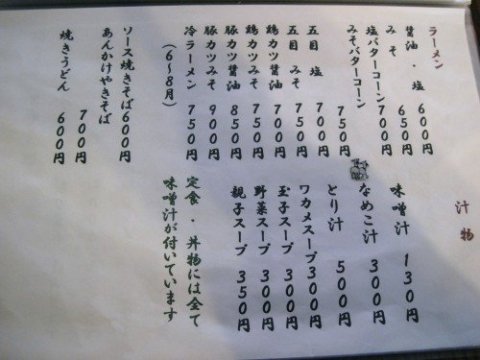 ラーメン
醤油・塩 600円
みそ 650円
塩バターコーン 700円
みそバターコーン 750円
五目 塩 700円
五目 みそ 750円
鶏カツ醤油 700円
鶏カツみそ 750円
豚カツ醤油 850円
豚カツみそ 900円
冷ラーメン 750円
(6〜8月)
ソース焼きそば 600円
あんかけやきそば 700円
焼きうどん 600円
汁物
味噌汁 130円
なめこ汁 300円
とり汁 500円
ワカメスープ 300円
玉子スープ 300円
野菜スープ 300円
親子スープ 350円
定食・丼物には全て
味噌汁が付いています